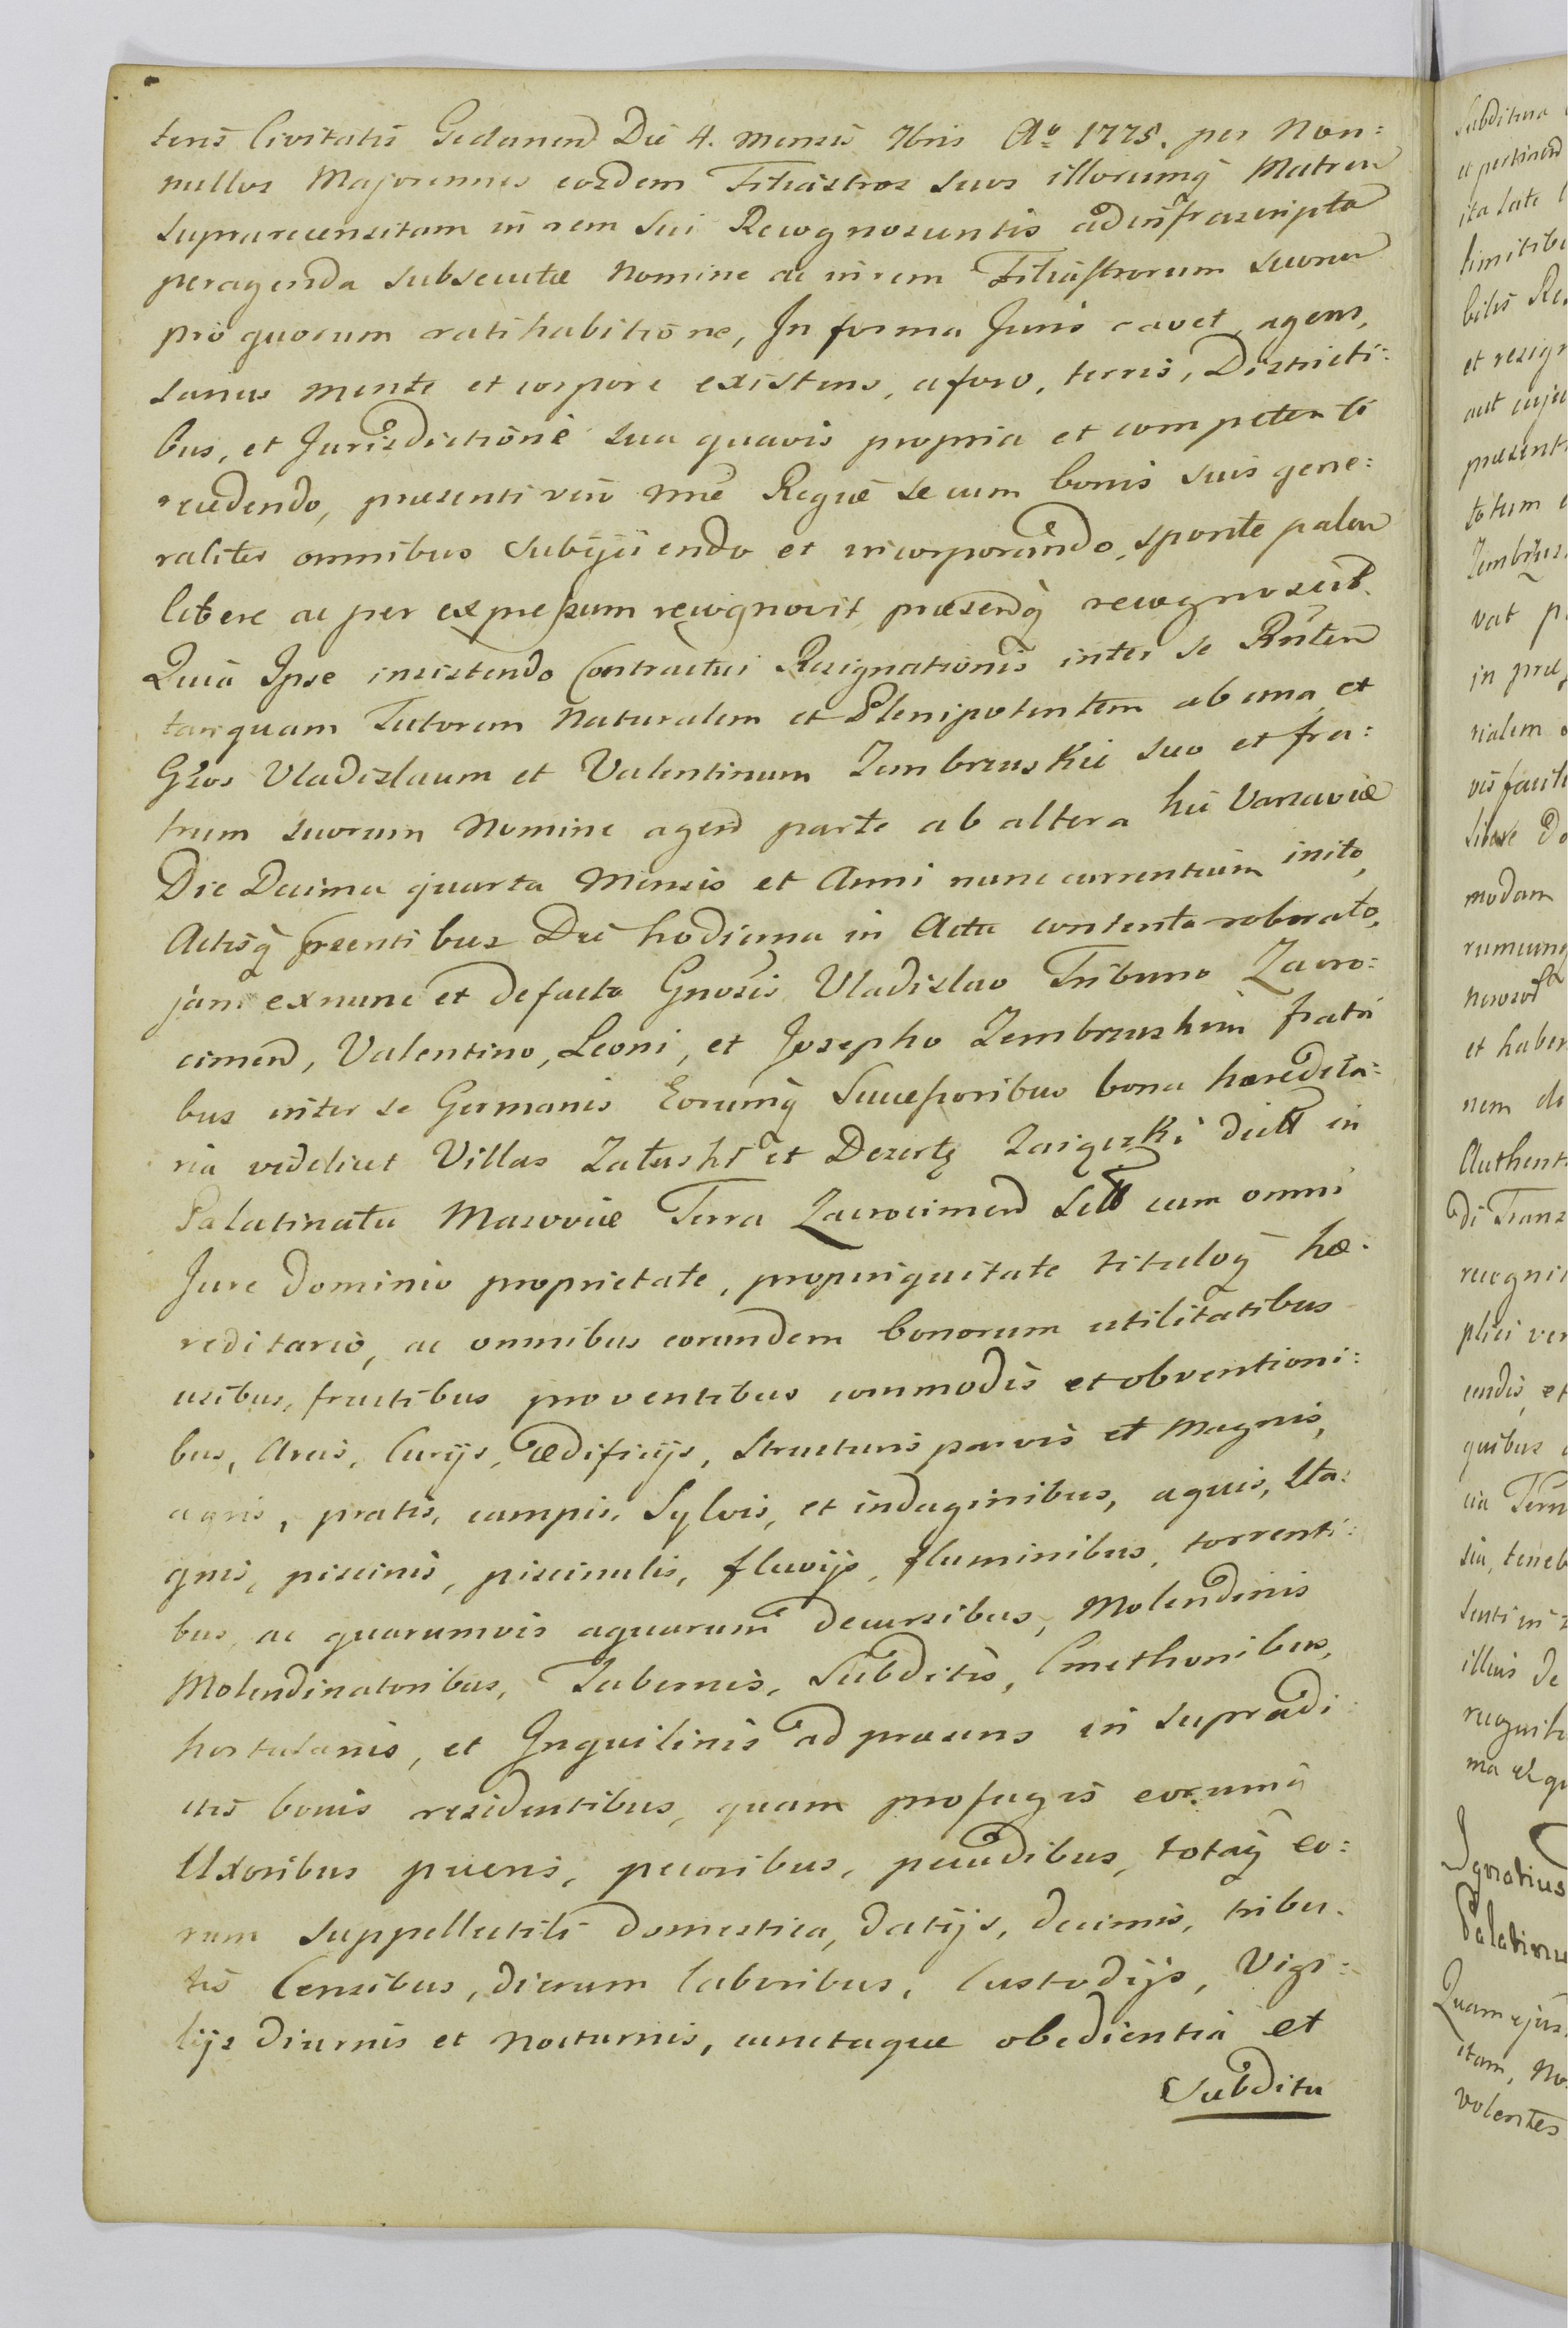 teris Civitatis Gedanen Die 4. Mensis 7bris Ao 1775. per Non:
nullos Majorennes eosdem Filiastros suos illorumq Matrem
suprarecensitam in rem sui Recognoscentis ad infrascripta
peragenda subsecutae Nomine ac in rem Filiastrorum suorum
pro quorum ratihabitione, In forma Juris cavet, agens,
sanus mente et corpore existens, a foro, terris, Districti:
bus, et Jurisdictione sua quavis propria et competenti
recedendo, praesenti vero Regni se cum bonis suis gene:
raliter omnibus subijciendo et incorporando, sponte palam
libere ac per expressum recognovit, praesentq recognoscit.
Quia Ipse insistendo Contractui Resignationis inter se Rnten
tanquam Tutorem Naturalem et Plenipotentem ab una, et
Gsos Vladislaum et Valentinum Zembrzuskie suo et fra:
trum suorum Nomine agen parte ab altera hic Varsaviae
Die Decima quarta Mensis et Anni nunc currentium inito,
Actisq prentibus Die hodierna in Actu contento roborato,
jam exnunc et defacto Gnosis Vladislao Tribuno Zacro:
cimen, Valentino, Leoni, et Josepho Zembrzuskim fratri
bus inter se Germanis Eorumq Successoribus bona haeredita:
ria videlicet Villas Załuski et Dezertę dictt in
Palatinatu Masoviae Terra Zacrocimen sitt cum omni
Jure Dominio proprietate, propinquitate tituloq hae:
reditario, ac omnibus eorundem bonorum utilitatibus
usibus, fructibus proventibus commodis et obventioni:
bus, Areis, Curijs, aedificijs, structuris parvis et Magnis,
agris, pratis, campis, Sylvis, et indaginibus, aquis, sta:
gnis, piscinis, piscinulis, fluvijs, fluminibus, torrenti:
bus, ac quarumvis aquarum decursibus, Molendinis
Molendinatoribus, Tabernis, Subditis, Cmethonibus,
hortulanis, et Inquilinis ad praesens in supradi
ctis bonis residentibus, quam profugis eorumq
Uxoribus pueris, pecoribus, pecudibus, totaq eo:
rum suppellectili domestica, datijs, decimis, tribu:
tis Censibus, dierum laboribus, Custodijs, Vigi:
lijs diurnis et nocturnis, cunctaque obedientia et
Subditu
Subditua
et pertinen
ita late
limitibu
bilis Re
et resign
aut cuju
praesenti
totum
Zembrzus
vat p
in prae
rialem
vis facult
libere do
modam
rumcunq
et haber
nem de
Authent
di Trans
recogni
plici ver
cendis, et
quibus
cia Terr
sia, teneb
senti in
illius de
ma
Ignatius
Palatinu
Quam ejus
itam, No
volentes